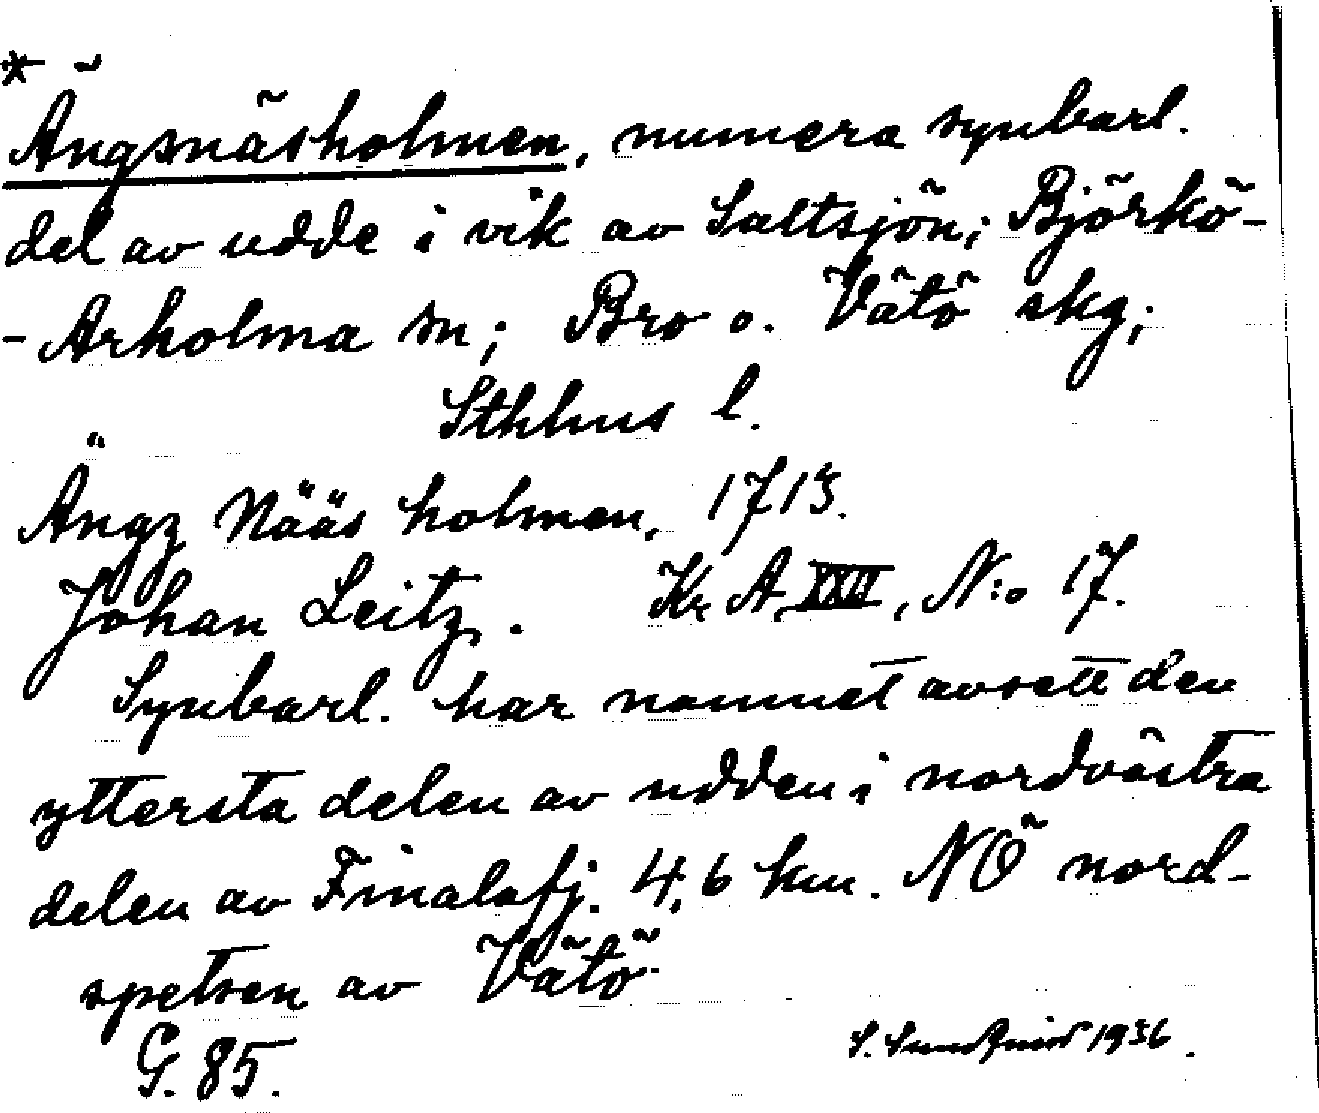 * Ängsnäsholmen, numera synbarl.
del av udde i vik av Saltsjön; Björkö-
-Arholma sn; Bro o. Vätö skg;
Sthlms l.
Ängz Nääs holmen, 1713.
Johan Leitz. Kr A XXII, N:o 17.
Synbarl. har namnet avsett den
yttersta delen av udden i nordvästra
delen av Finalafj. 4,6 km. NÖ nord-
spetsen av Vätö.
G. 85. S. Sundqvist 1936.